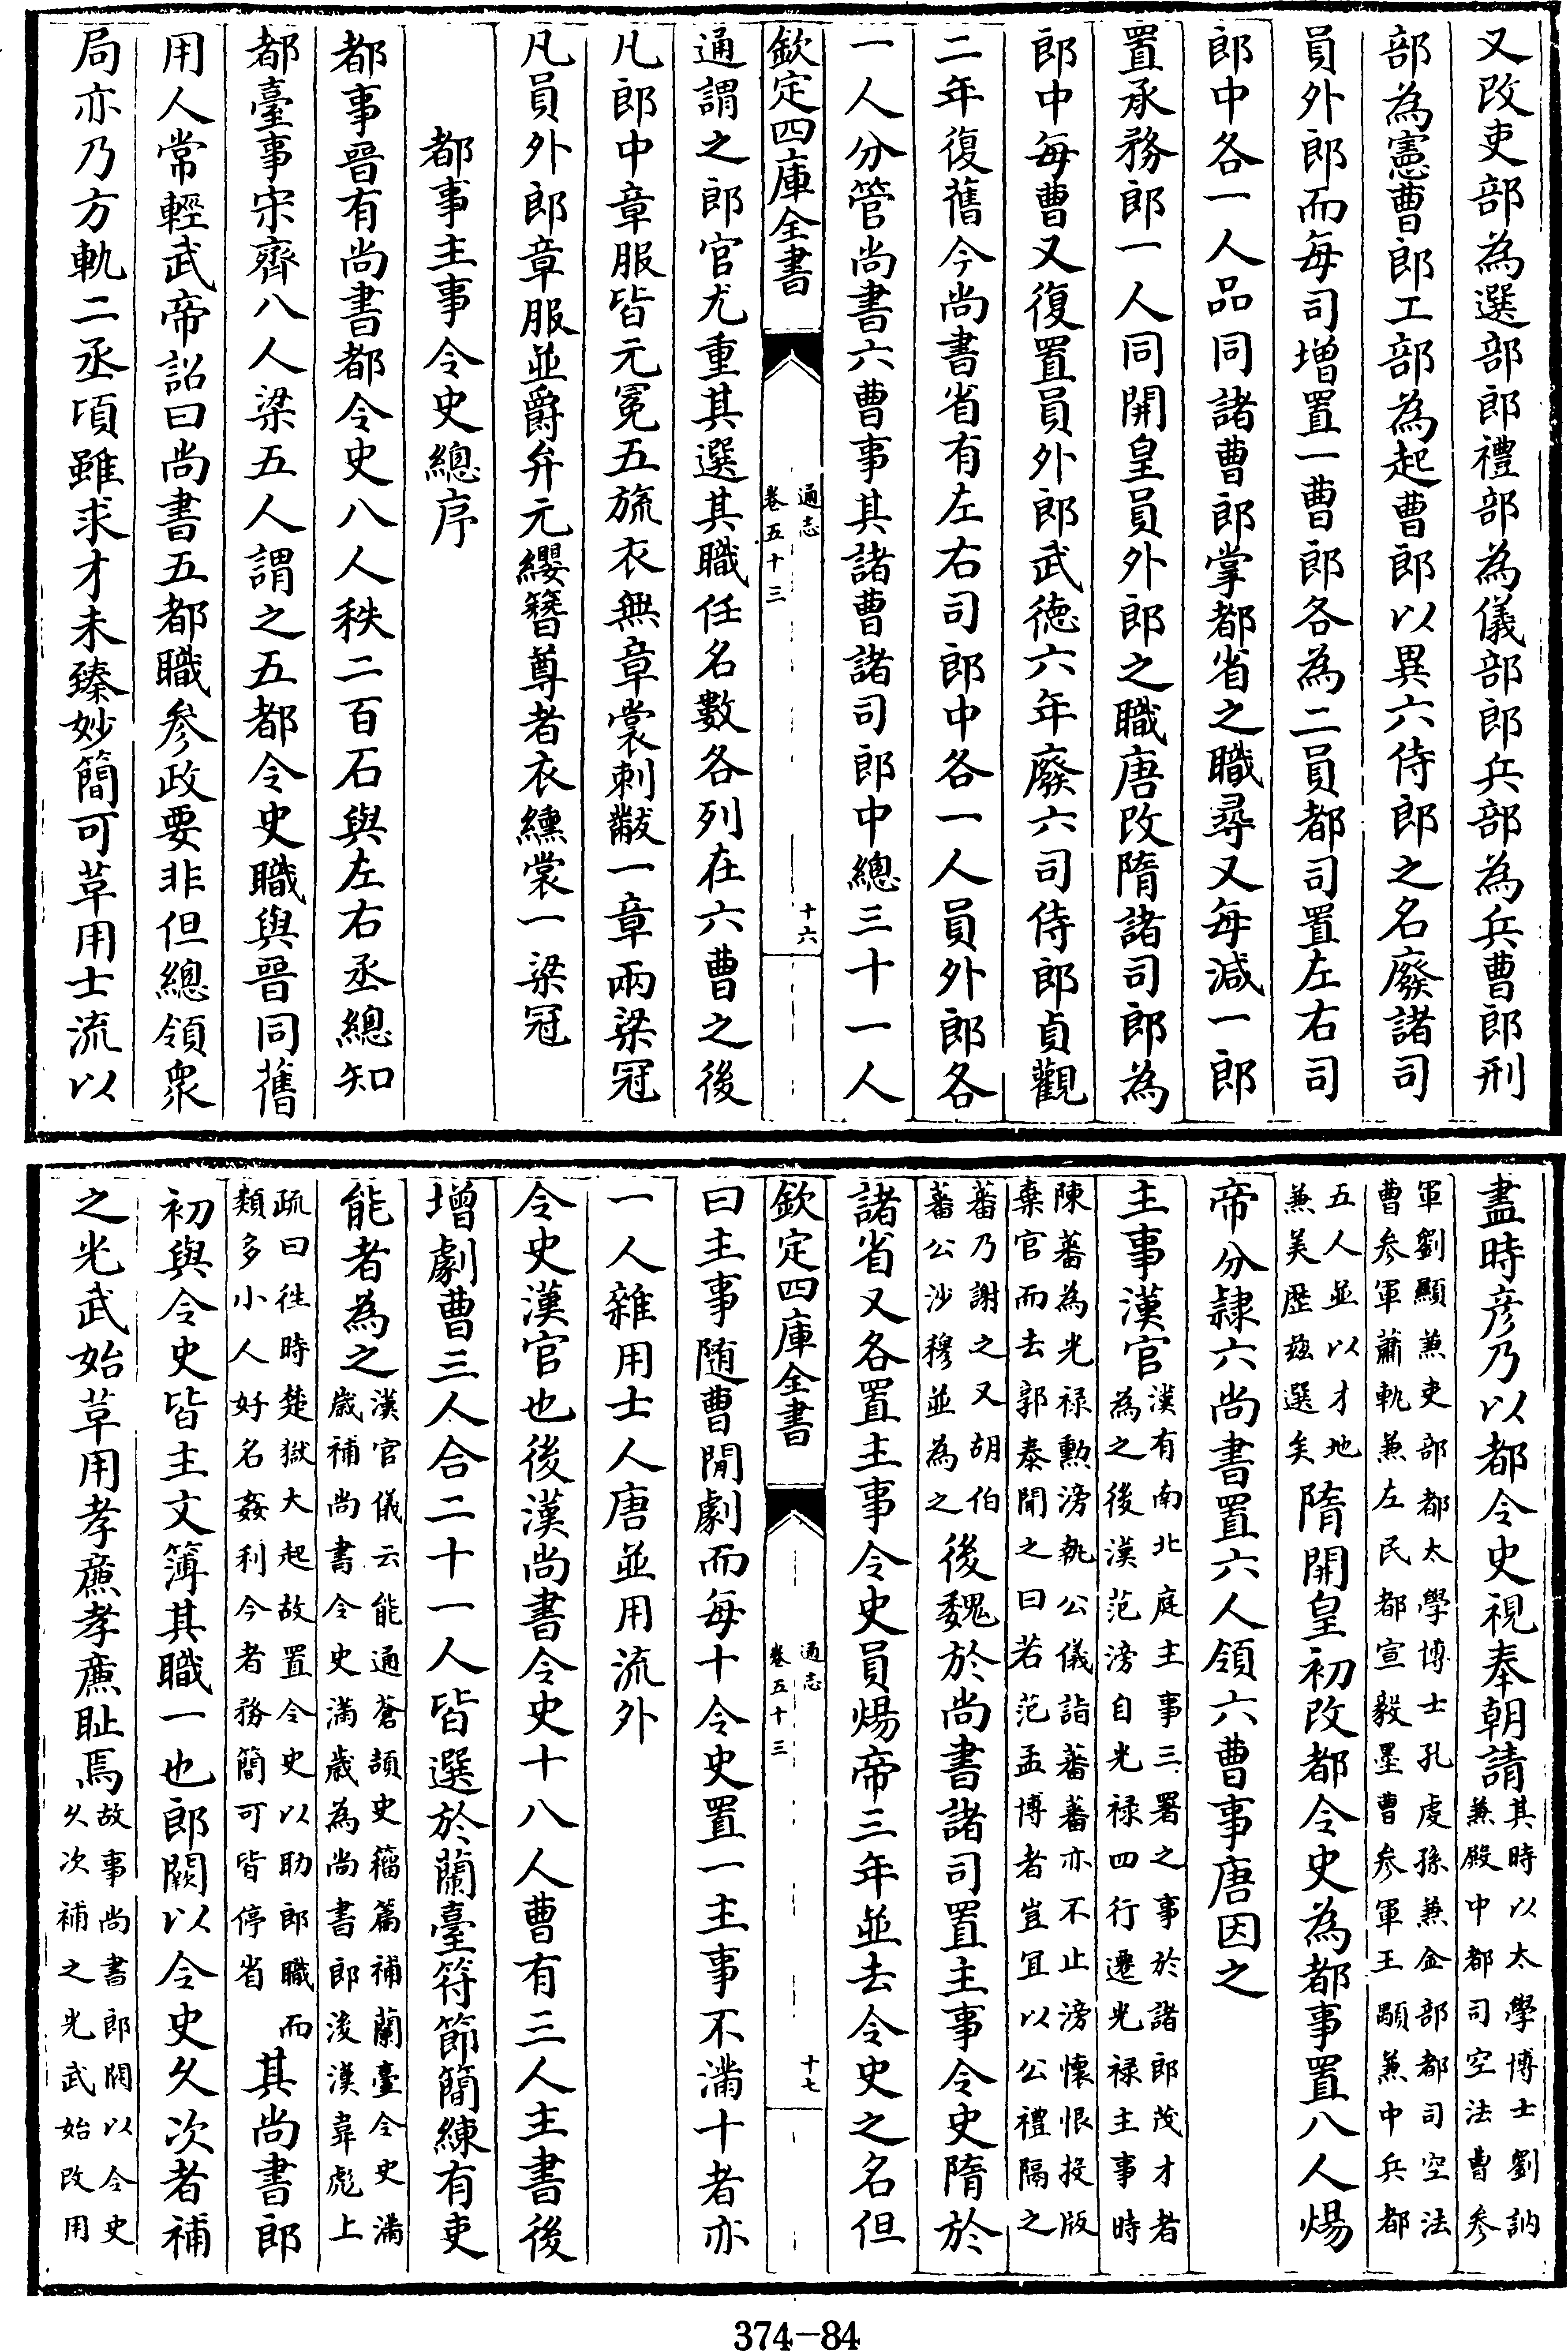 又改吏部為選部郎禮部為儀部郎兵部為兵曹郎刑
部為憲曹郎工部為起曹郎以異六侍郎之名廢諸司
員外郎而每司增置一曹郎各為二員都司置左右司
郎中各一人品同諸曹郎掌都省之職尋又每減一郎
置承務郎一人同開皇員外郎之職唐改隋諸司郎為
郎中每曹又復置員外郎武徳六年廢六司侍郎貞觀
二年復舊今尚書省有左右司郎中各一人員外郎各
一人分管尚書六曹事其諸曹諸司郎中總三十一人
欽定四庫全書
通志
卷五十三
十六
通謂之郎官尤重其選其職任名數各列在六曹之後
凡郎中章服皆元冕五旒衣無章裳刺黻一章兩梁冠
凡員外郎章服並爵弁元纓簪尊者衣纁裳一梁冠
都事主事令史總序
都事晉有尚書都令史八人秩二百石與左右丞總知
都臺事宋齊八人梁五人謂之五都令史職與晉同舊
用人常輕武帝詔曰尚書五都職參政要非但總領衆
局亦乃方軌二丞頃雖求才未臻妙簡可草用士流以
盡時彦乃以都令史視奉朝請其時以太學博士劉訥
兼殿中都司空法曹參
軍劉顯兼吏部都太學博士孔虔孫兼金部都司空法
曹参軍蕭軌兼左民都宣毅墨曹参軍王顒兼中兵都
五人並以才地
兼美歴兹選矣隋開皇初改都令史為都事置八人煬
帝分隷六尚書置六人領六曹事唐因之
主事漢官漢有南北庭主事三署之事於諸郎茂才者
為之後漢范滂自光禄四行遷光禄主事時
陳蕃為光禄勲滂執公儀詣蕃蕃亦不止滂懷恨投版
棄官而去郭泰聞之曰若范孟博者豈宜以公禮隔之
蕃乃謝之又胡伯
蕃公沙穆並為之後魏於尚書諸司置主事令史隋於
諸省又各置主事令史員煬帝三年並去令史之名但
欽定四庫全書
通志
卷五十三
十七
曰主事随曹閒劇而每十令史置一主事不滿十者亦
一人雜用士人唐並用流外
令史漢官也後漢尚書令史十八人曹有三人主書後
增劇曹三人合二十一人皆選於蘭臺符節簡練有吏
能者為之漢官儀云能通蒼頡史籀篇補蘭臺令史滿
歲補尚書令史滿歲為尚書郎後漢韋彪上
疏曰徃時楚獄大起故置令史以助郎職而
類多小人好名姦利今者務簡可皆停省其尚書郎
初與令史皆主文簿其職一也郎闕以令史久次者補
之光武始草用孝亷孝亷耻焉故事尚書郎闕以令史
久次補之光武始改用
374—84